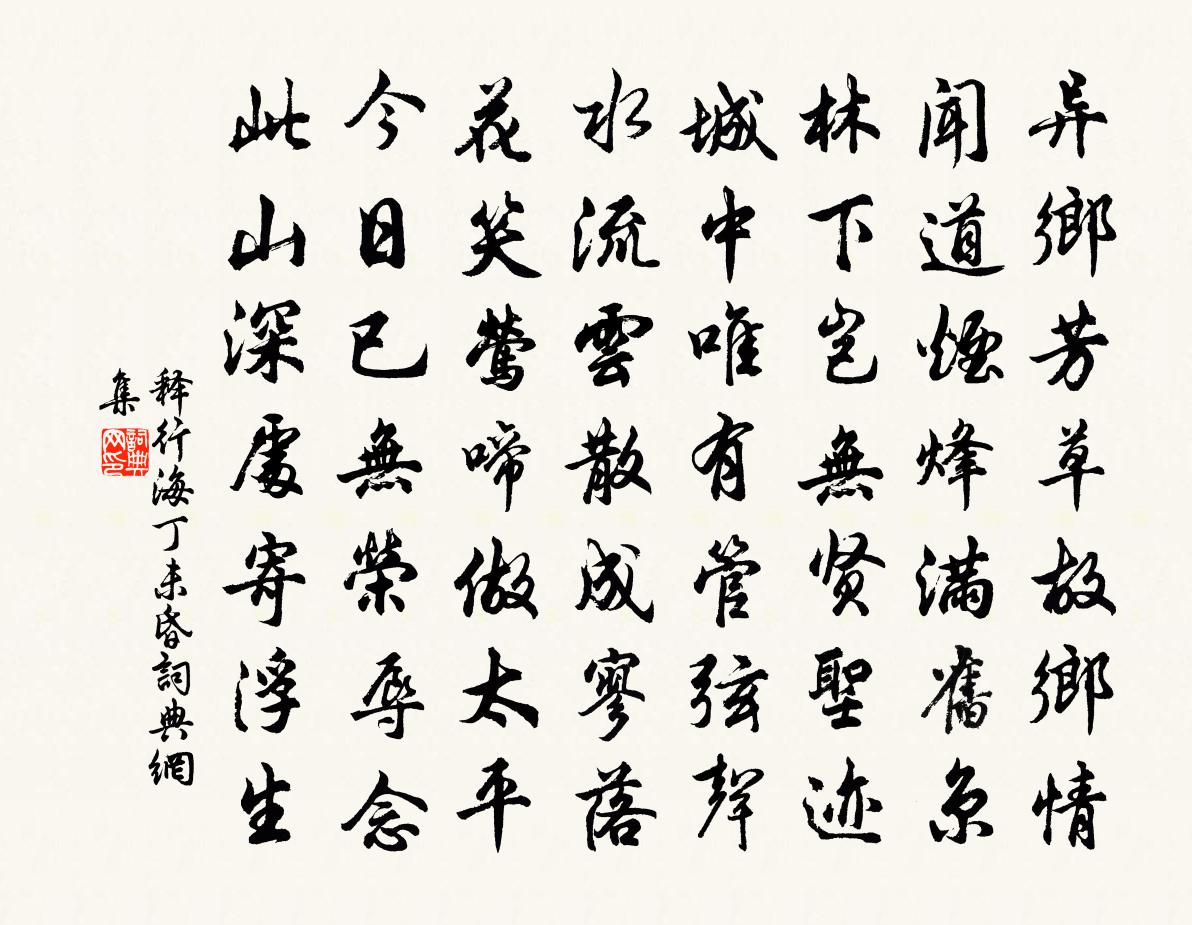 异鄉芳草故鄉情
聞道煙烽滿舊京
林下岂無贤聖迹
城中唯有管弦聲
水流雲散成寥落
花笑鶯啼做太平
今日已無榮辱念
此山深處寄浮生
释行海丁未昏詞典網
集
詞典网印